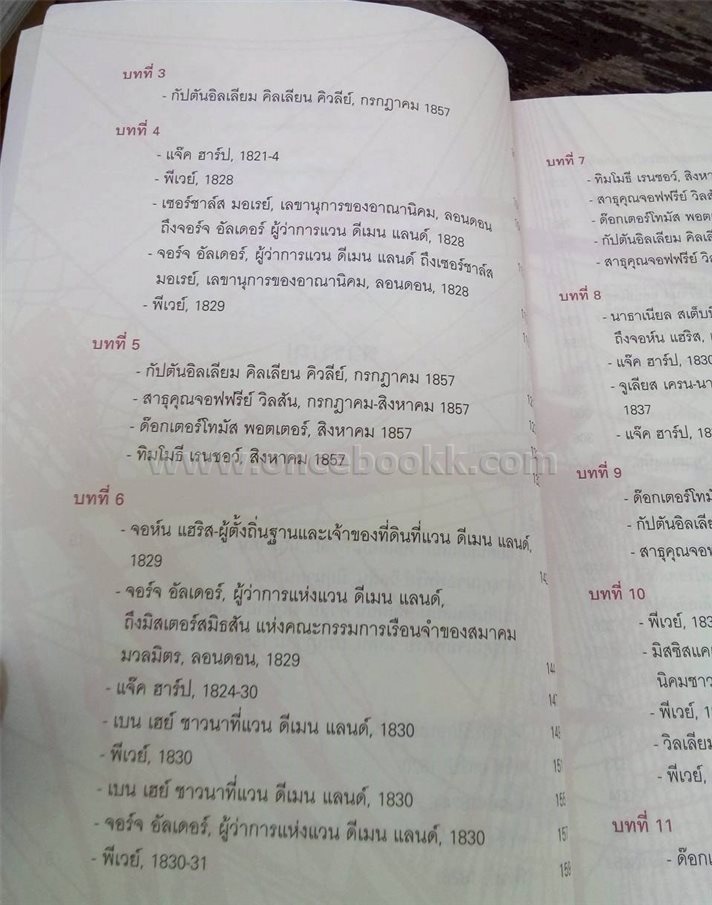 บทที่ 3
- กัปตันอิลเลียม คิลเลียน คิวลีย์, กรกฎาคม 1857
บทที่ 4
- แจ๊ค ฮาร์ป, 1821-4
- พีเวย์, 1828
- เซอร์ชาล์ส มอเรย์, เลขานุการของอาณานิคม, ลอนดอน
ถึงจอร์จ อัลเดอร์, ผู้ว่าการแวน ดีเมน แลนด์, 1828
- จอร์จ อัลเดอร์, ผู้ว่าการแวน ดีเมน แลนด์ ถึงเซอร์ชาล์ส
มอเรย์, เลขานุการของอาณานิคม, ลอนดอน, 1828
- พีเวย์, 1829
บทที่ 5
- กัปตันอิลเลียม คิลเลียน คิวลีย์, กรกฎาคม 1857
- สาธุคุณจอฟฟรีย์ วิลสัน, กรกฎาคม-สิงหาคม 1857
- ด๊อกเตอร์โทมัส พอตเตอร์, สิงหาคม 1857
- ทิมโมธี เรนชอว์, สิงหาคม 1857
www.oncebookk.com
บทที่ 6
- จอห์น แฮริส-ผู้ตั้งถิ่นฐานและเจ้าของที่ดินที่แวน ดีเมน แลนด์,
1829
- จอร์จ อัลเดอร์, ผู้ว่าการแห่งแวน ดีเมน แลนด์,
ถึงมิสเตอร์สมิธสัน แห่งคณะกรรมการเรือนจำของสมาคม
มวลมิตร, ลอนดอน, 1829
- แจ๊ค ฮาร์ป, 1824-30
- เบน เฮย์ ชาวนาที่แวน ดีเมน แลนด์, 1830
- พีเวย์, 1830 151
- เบน เฮย์ ชาวนาที่แวน ดีเมน แลนด์, 1830
- จอร์จ อัลเดอร์, ผู้ว่าการแห่งแวน ดีเมน แลนด์, 1830 157
- พีเวย์, 1830-31 159
บทที่ 7
- ทิมโมธี เรนชอว์,
- สาธุคุณจอฟฟรีย์
- ด๊อกเตอร์โทมัส
- กัปตันอิลเลียม
- สาธุคุณจอฟฟรีย์
บทที่ 8
- นาธาเนียล
ถึงจอห์น แฮริส,
- แจ๊ค ฮาร์ป, 1830
- จูเลียส
1837
- แจ๊ค ฮาร์ป,
บทที่ 9
- ด๊อกเตอร์
- กัปตัน
- สาธุคุณ
บทที่ 10
- พีเวย์,
- มิสซิส
- พีเวย์,
- วิลเลียม
- พีเวย์,
บทที่ 11